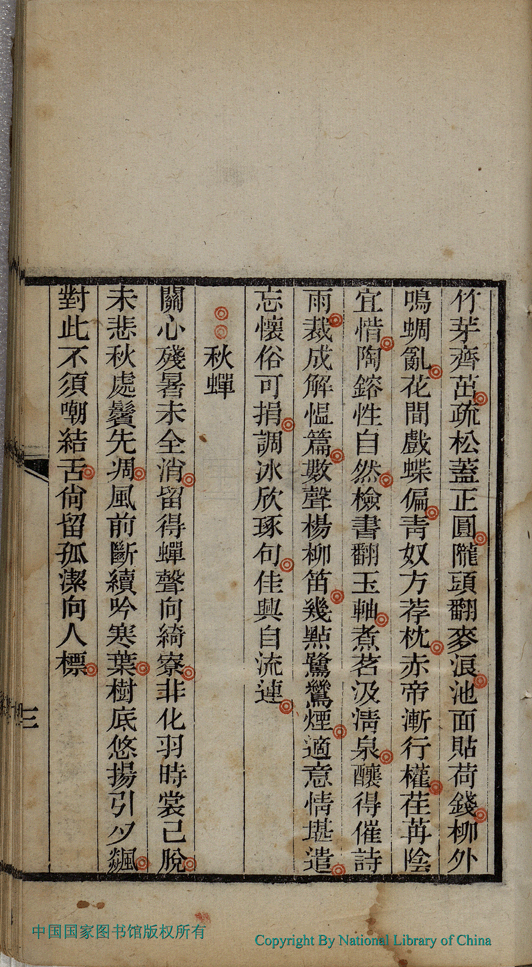 竹芽齊茁疏松蓋正圓隴頭翻麥浪池面貼荷錢柳外
鳴蜩亂花間戲蝶偏靑奴方荐枕赤帝漸行權荏苒陰
宜惜陶鎔性自然檢書翻玉軸煮茗汲淸泉釀得催詩
雨裁成解慍篇數聲楊柳笛幾點鷺鷥煙適意情堪遣
忘懷俗可捐調冰欣琢句佳興自流連
秋蟬
關心殘暑未全消留得蟬聲向綺寮非化羽時裳已脫
未悲秋處鬢先凋風前斷續吟寒葉樹底悠揚引夕飆
對此不須嘲結舌尙留孤潔向人標
三
中国国家图书馆版权所有
Copyright By National Library of China